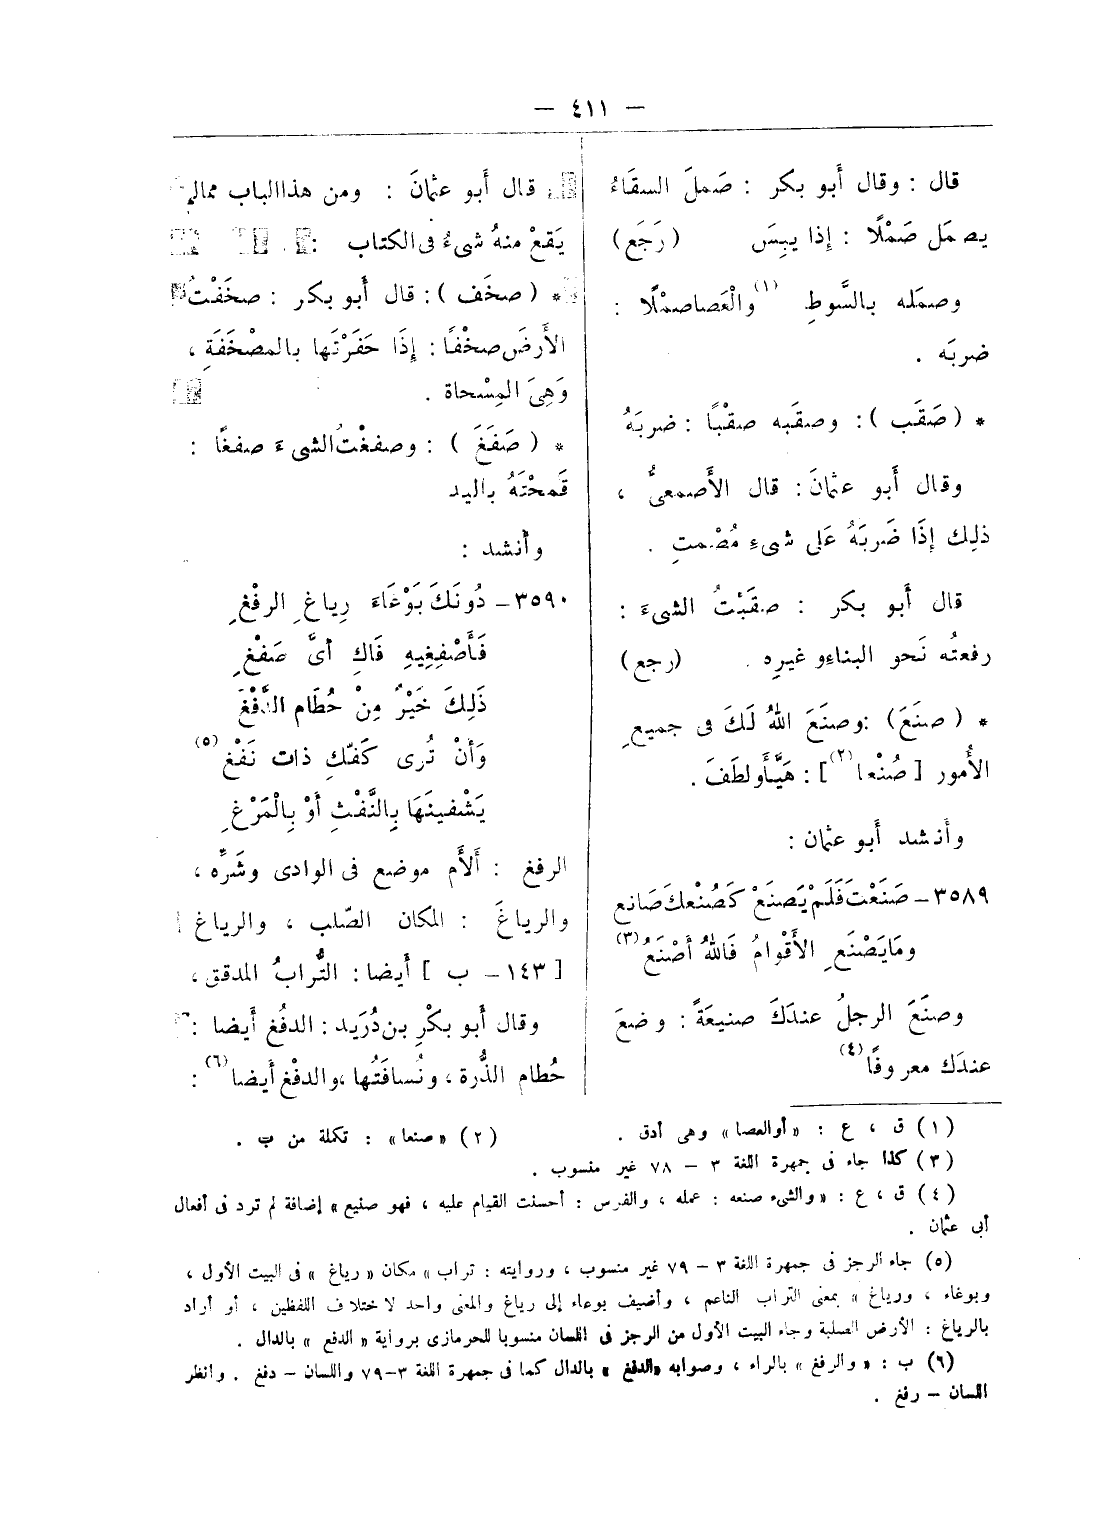 — ٤١١ —
قال : وقال أَبو بكر : صَملَ السقَاءُ
يصمَل صَمْلًا : إذا يبِسَ (رَجَع)
وصمَله بالسَّوطِ (١) والْعَصاصمْلًا :
ضربَه .
* (صَقَب) : وصقَبه صقْبًا : ضربَهُ
وقال أَبو عثمانَ : قال الأَصمعىُّ ،
ذلِك إذَا ضَربَهُ عَلى شىءٍ مُصْمتٍ .
قال أَبو بكر : صقَبْتُ الشىءَ :
رفعتُه نَحو البناءِو غيرِه . (رجع)
* (صنَعَ) :وصنَعَ اللهُ لَكَ فى جميعِ
الأُمور [صُنْعا(٢)] : هَيَّأَولطَفَ .
وأَنشد أَبو عثمان :
٣٥٨٩ – صَنَعْتَ فَلَمْ يَصنَعْ كَصُنْعكَ صَانِع
ومَايَصْنَعِ الأَقْوامُ فَاللهُ أَصْنَعُ (٣)
وصنَعَ الرجلُ عندَكَ صنيعَةً : وضعَ
عندَك معروفًا (٤)
قال أَبو عثمانَ : ومن هذاالباب ممالم
يَقعْ منهُ شىءُ فى الكتاب :
* (صخَف) : قال أَبو بكر : صخَفْتُ
الأَرضَ صخْفًا : إِذَا حَفَرْتَها بالمصْخَفَةِ ،
وَهِىَ المِسْحاة .
* (صَفَغَ) : وصفغْتُ الشىءَ صفغًا :
قَمحْتَهُ باليد
وأَنشد :
٣٥٩٠ – دُونَكَ بَوْغَاءَ رِياغِ الرفْغِ
فَأَصْفِغِيهِ فَاكِ أىَّ صَفْغِ
ذَلِكَ خَيْرٌ مِنْ حُطَام الدَّفْغَ
وَأنْ تُرى كَفّكِ ذات نَفْغ (٥)
يَشْفينَهَا بِالنَّفْثِ أوْ بِالْمَرْغِ
الرفغ : أَلأَم موضع فى الوادى وشَرّه ،
والرياغَ : المكان الصّلب ، والرياغ
[ ١٤٣ – ب ] أَيضا : التُّرابُ المدقق ،
وقال أَبو بكْرِ بن دُرَيد : الدفُغ أَيضا :
حُطام الذُّرة ، ونُسافَتُها ،والدفْغ أَيضا (٦) :
(١) ق ، ع : «أوالعصا» وهى أدق .
(٢) «صنعا» : تكملة من ب .
(٣) كذا جاء فى جمهرة اللغة ٣ – ٧٨ غير منسوب .
(٤) ق ، ع : «والشىء صنعه : عمله ، والفرس : أحسنت القيام عليه ، فهو صنيع» إضافة لم ترد فى أفعال
أبى عثمان .
(٥) جاء الرجز فى جمهرة اللغة ٣ – ٧٩ غير منسوب ، وروايته : تراب» مكان «رياغ» فى البيت الأول ،
وبوغاء ، ورياغ» بمعنى التراب الناعم ، وأضيف بوعاء إلى رياغ والمعنى واحد لاختلاف اللفظين ، أو أراد
بالرياغ : الأرض الصلبة وجاء البيت الأول من الرجز فى اللسان منسوبا للحرمازى برواية «الدفع» بالدال .
(٦) ب : «والرفغ» بالراء ، وصوابه «الدفغ» بالدال كما فى جمهرة اللغة ٣–٧٩ واللسان – دفغ . وانظر
اللسان – رفغ .